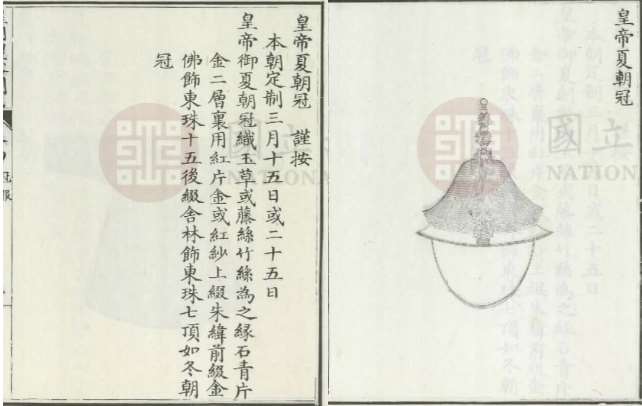 皇帝夏朝冠
皇帝夏朝冠 謹按
本朝定制三月十五日或二十五日
皇帝御夏朝冠織玉草或藤絲竹絲為之緣石青片
金二層裏用紅片金或紅紗上綴朱緯前綴金
佛飾東珠十五後綴舍林飾東珠七頂如冬朝
冠
國立
NATION
國立
NATION